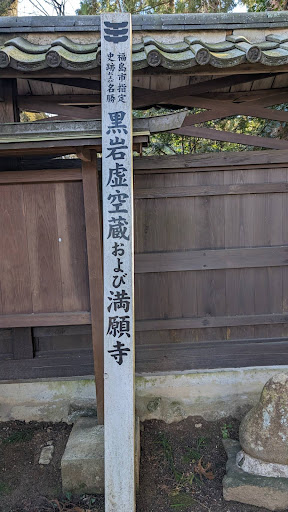 福島市指定
史跡および名勝
黒岩虚空蔵および満願寺